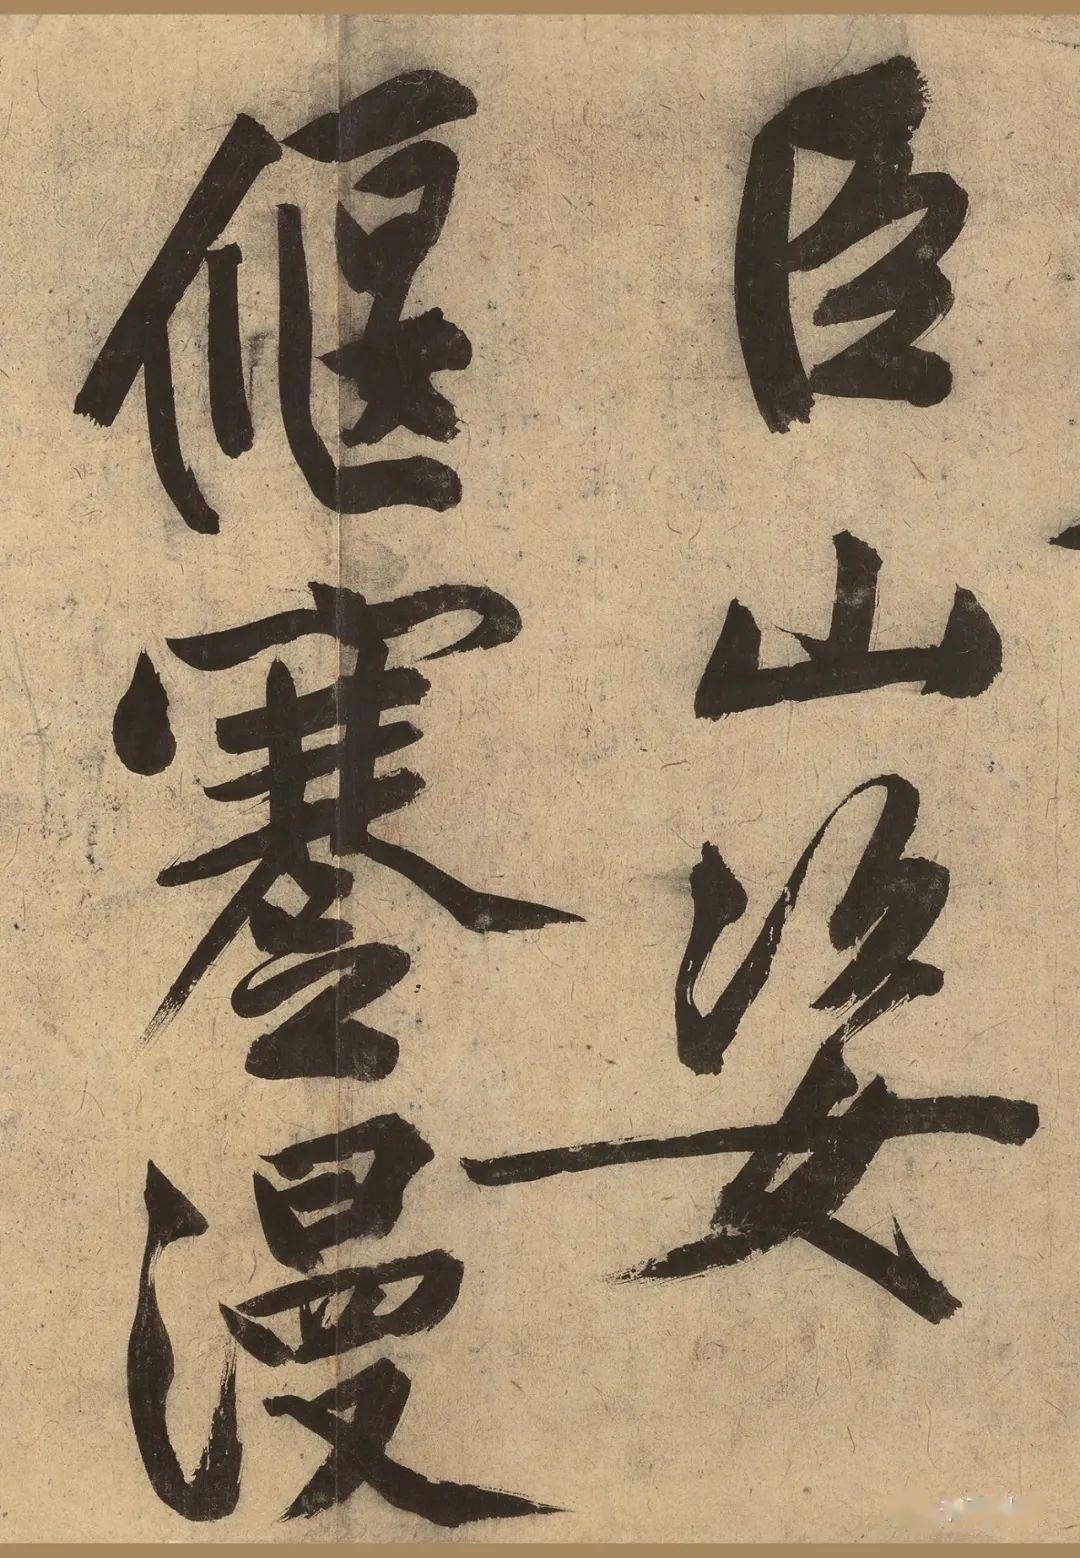 臣山姿
偃蹇漫